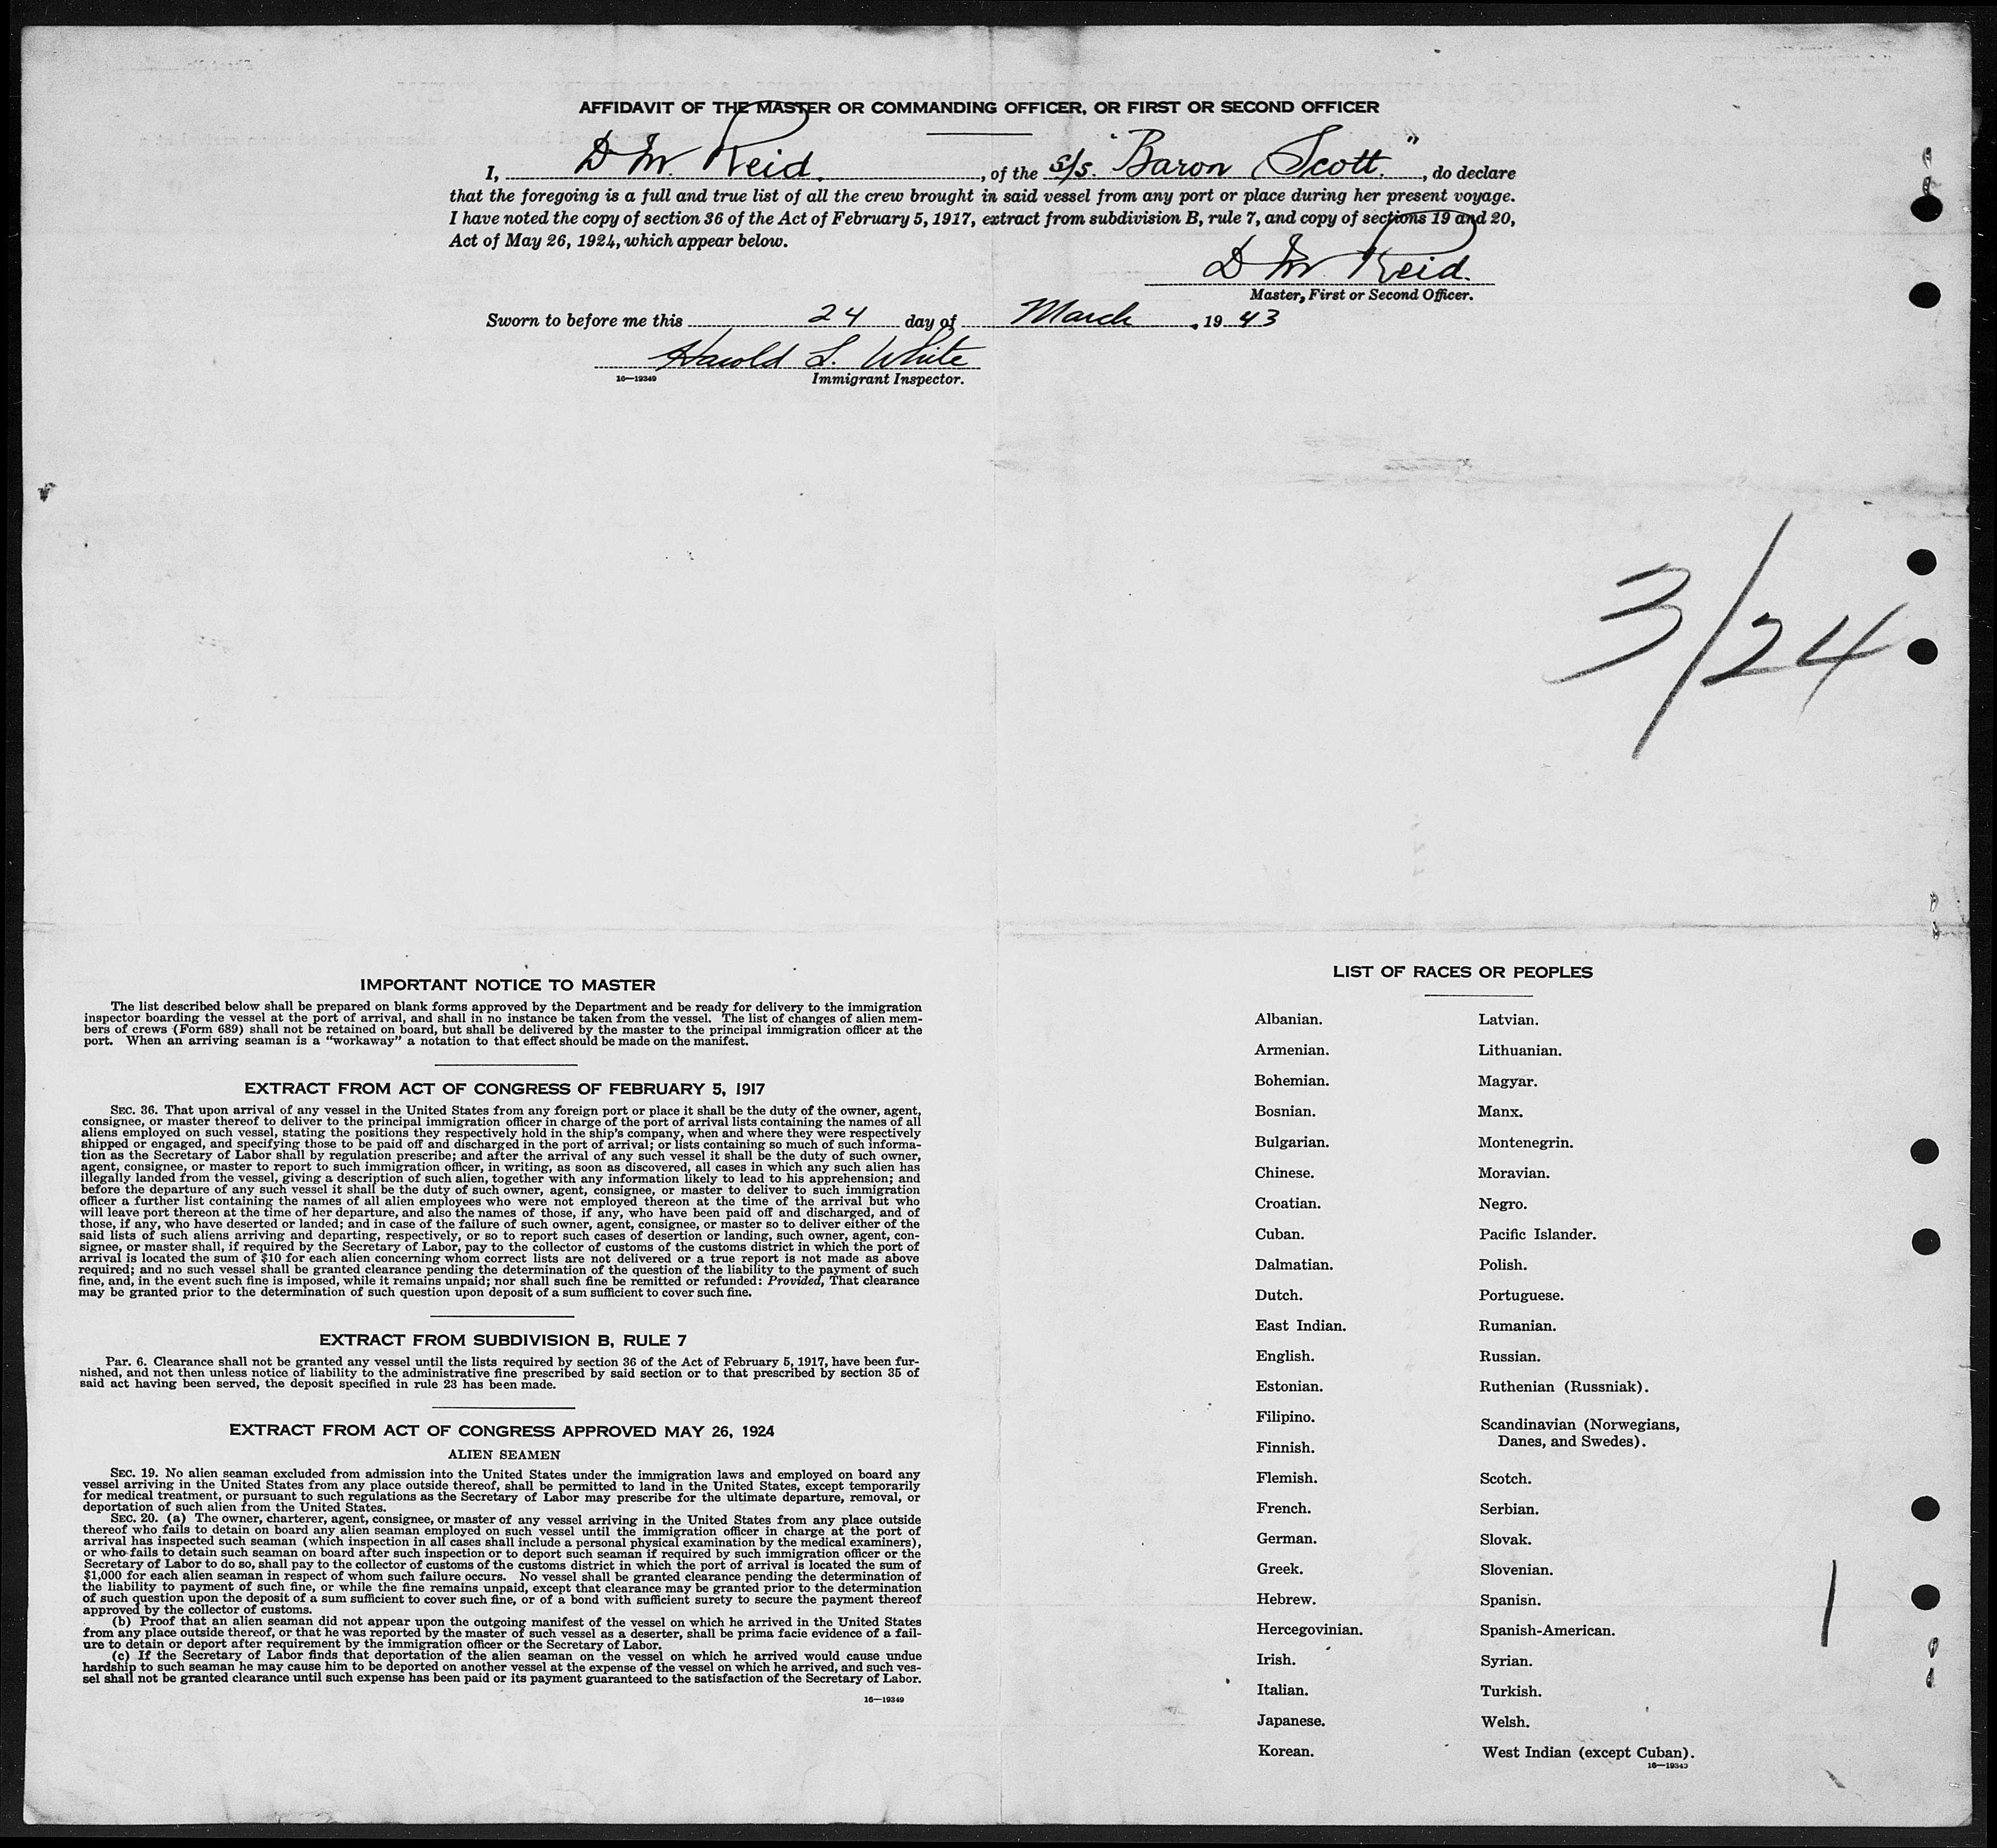 AFFIDAVIT OF THE MASTER OR COMMANDING OFFICER, OR FIRST OR SECOND OFFICER
I, D. M. Reid., of the s/s. "Baron Scott.", do declare
that the foregoing is a full and true list of all the crew brought in said vessel from any port or place during her present voyage.
I have noted the copy of section 36 of the Act of February 5, 1917, extract from subdivision B, rule 7, and copy of sections 19 and 20,
Act of May 26, 1924, which appear below.
D M. Reid.
Master, First or Second Officer.
Sworn to before me this 24 day of March, 19 43
Harold L. White
16—19349 Immigrant Inspector.
3/24
IMPORTANT NOTICE TO MASTER
The list described below shall be prepared on blank forms approved by the Department and be ready for delivery to the immigration
inspector boarding the vessel at the port of arrival, and shall in no instance be taken from the vessel. The list of changes of alien mem-
bers of crews (Form 689) shall not be retained on board, but shall be delivered by the master to the principal immigration officer at the
port. When an arriving seaman is a "workaway" a notation to that effect should be made on the manifest.
EXTRACT FROM ACT OF CONGRESS OF FEBRUARY 5, 1917
SEC. 36. That upon arrival of any vessel in the United States from any foreign port or place it shall be the duty of the owner, agent,
consignee, or master thereof to deliver to the principal immigration officer in charge of the port of arrival lists containing the names of all
aliens employed on such vessel, stating the positions they respectively hold in the ship's company, when and where they were respectively
shipped or engaged, and specifying those to be paid off and discharged in the port of arrival; or lists containing so much of such informa-
tion as the Secretary of Labor shall by regulation prescribe; and after the arrival of any such vessel it shall be the duty of such owner,
agent, consignee, or master to report to such immigration officer, in writing, as soon as discovered, all cases in which any such alien has
illegally landed from the vessel, giving a description of such alien, together with any information likely to lead to his apprehension; and
before the departure of any such vessel it shall be the duty of such owner, agent, consignee, or master to deliver to such immigration
officer a further list containing the names of all alien employees who were not employed thereon at the time of the arrival but who
will leave port thereon at the time of her departure, and also the names of those, if any, who have been paid off and discharged, and of
those, if any, who have deserted or landed; and in case of the failure of such owner, agent, consignee, or master so to deliver either of the
said lists of such aliens arriving and departing, respectively, or so to report such cases of desertion or landing, such owner, agent, con-
signee, or master shall, if required by the Secretary of Labor, pay to the collector of customs of the customs district in which the port of
arrival is located the sum of $10 for each alien concerning whom correct lists are not delivered or a true report is not made as above
required; and no such vessel shall be granted clearance pending the determination of the question of the liability to the payment of such
fine, and, in the event such fine is imposed, while it remains unpaid; nor shall such fine be remitted or refunded: Provided, That clearance
may be granted prior to the determination of such question upon deposit of a sum sufficient to cover such fine.
EXTRACT FROM SUBDIVISION B, RULE 7
Par. 6. Clearance shall not be granted any vessel until the lists required by section 36 of the Act of February 5, 1917, have been fur-
nished, and not then unless notice of liability to the administrative fine prescribed by said section or to that prescribed by section 35 of
said act having been served, the deposit specified in rule 23 has been made.
EXTRACT FROM ACT OF CONGRESS APPROVED MAY 26, 1924
ALIEN SEAMEN
SEC. 19. No alien seaman excluded from admission into the United States under the immigration laws and employed on board any
vessel arriving in the United States from any place outside thereof, shall be permitted to land in the United States, except temporarily
for medical treatment, or pursuant to such regulations as the Secretary of Labor may prescribe for the ultimate departure, removal, or
deportation of such alien from the United States.
SEC. 20. (a) The owner, charterer, agent, consignee, or master of any vessel arriving in the United States from any place outside
thereof who fails to detain on board any alien seaman employed on such vessel until the immigration officer in charge at the port of
arrival has inspected such seaman (which inspection in all cases shall include a personal physical examination by the medical examiners),
or who fails to detain such seaman on board after such inspection or to deport such seaman if required by such immigration officer or the
Secretary of Labor to do so, shall pay to the collector of customs of the customs district in which the port of arrival is located the sum of
$1,000 for each alien seaman in respect of whom such failure occurs. No vessel shall be granted clearance pending the determination of
the liability to payment of such fine, or while the fine remains unpaid, except that clearance may be granted prior to the determination
of such question upon the deposit of a sum sufficient to cover such fine, or of a bond with sufficient surety to secure the payment thereof
approved by the collector of customs.
(b) Proof that an alien seaman did not appear upon the outgoing manifest of the vessel on which he arrived in the United States
from any place outside thereof, or that he was reported by the master of such vessel as a deserter, shall be prima facie evidence of a fail-
ure to detain or deport after requirement by the immigration officer or the Secretary of Labor.
(c) If the Secretary of Labor finds that deportation of the alien seaman on the vessel on which he arrived would cause undue
hardship to such seaman he may cause him to be deported on another vessel at the expense of the vessel on which he arrived, and such ves-
sel shall not be granted clearance until such expense has been paid or its payment guaranteed to the satisfaction of the Secretary of Labor.
16—19349
LIST OF RACES OR PEOPLES
Albanian.
Armenian.
Bohemian.
Bosnian.
Bulgarian.
Chinese.
Croatian.
Cuban.
Dalmatian.
Dutch.
East Indian.
English.
Estonian.
Filipino.
Finnish.
Flemish.
French.
German.
Greek.
Hebrew.
Hercegovinian.
Irish.
Italian.
Japanese.
Korean.
Latvian.
Lithuanian.
Magyar.
Manx.
Montenegrin.
Moravian.
Negro.
Pacific Islander.
Polish.
Portuguese.
Rumanian.
Russian.
Ruthenian (Russniak).
Scandinavian (Norwegians,
Danes, and Swedes).
Scotch.
Serbian.
Slovak.
Slovenian.
Spanish.
Spanish-American.
Syrian.
Turkish.
Welsh.
West Indian (except Cuban).
16—19349
1